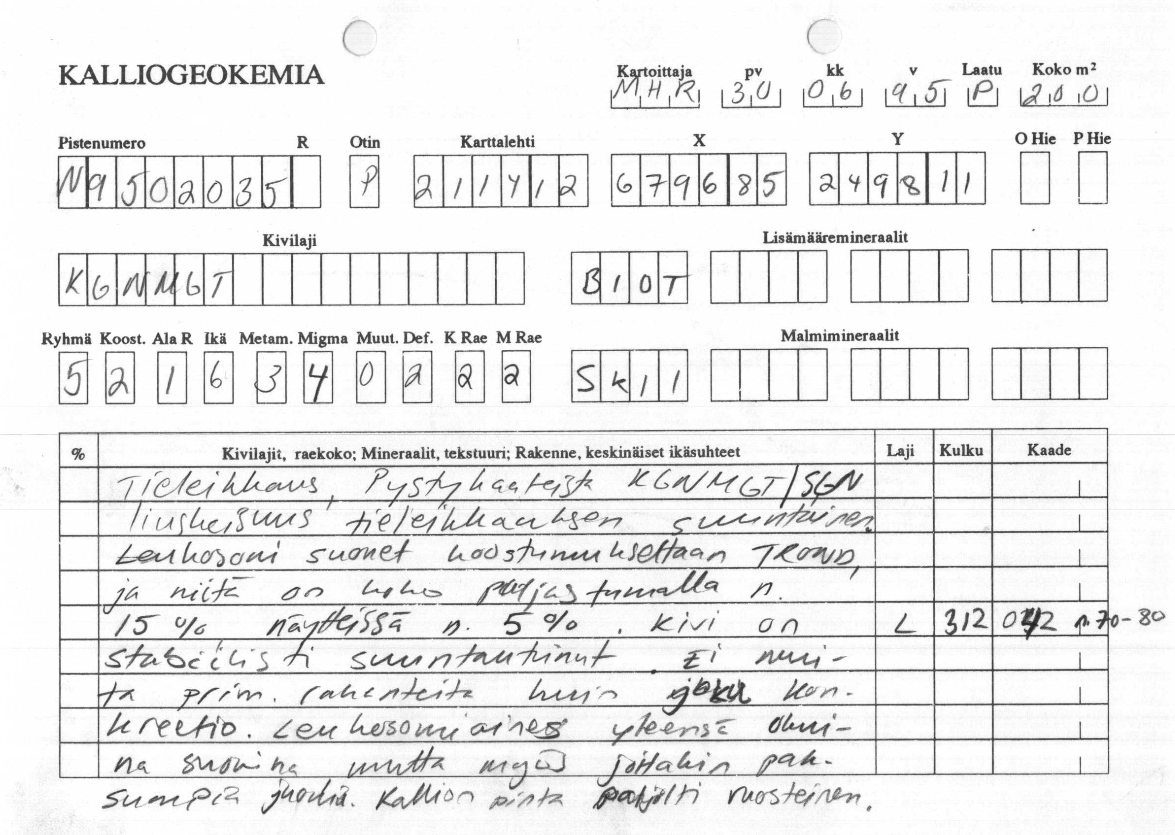 KALLIOGEOKEMIA
Kartoittaja pv kk v Laatu Koko m²
MHR 30 06 95 P 200
Pistenumero R Otin Karttalehti X Y O Hie P Hie
N9502035 P 211412 679685 249811
Kivilaji Lisämääremineraalit
KGNMGT BIOT
Ryhmä Koost. Ala R Ikä Metam. Migma Muut. Def. K Rae M Rae Malmimineraalit
5 2 1 6 3 4 0 2 2 2 2 SKII
% Kivilajit, raekoko; Mineraalit, tekstuuri; Rakenne, keskinäiset ikäsuhteet Laji Kulku Kaade
Tieleikkaus, Pystykaateista KGNMGT/SGN
liuskeisuus tieleikkauksen suuntainen.
Leukosomi suonet koostumukseltaan TROND,
ja niitä on koko paljastumalla n.
15 %, näytteissä n. 5 %. Kivi on L 312 042 n. 70-80
stabiilisti suuntautunut. Ei mui-
ta prim. rakenteita kuin joku kon-
kreetio. Leukosomiaines yleensä ohui-
na suonina mutta myös joitakin pak-
sumpia juonia. Kallion pinta paljolti ruosteinen.